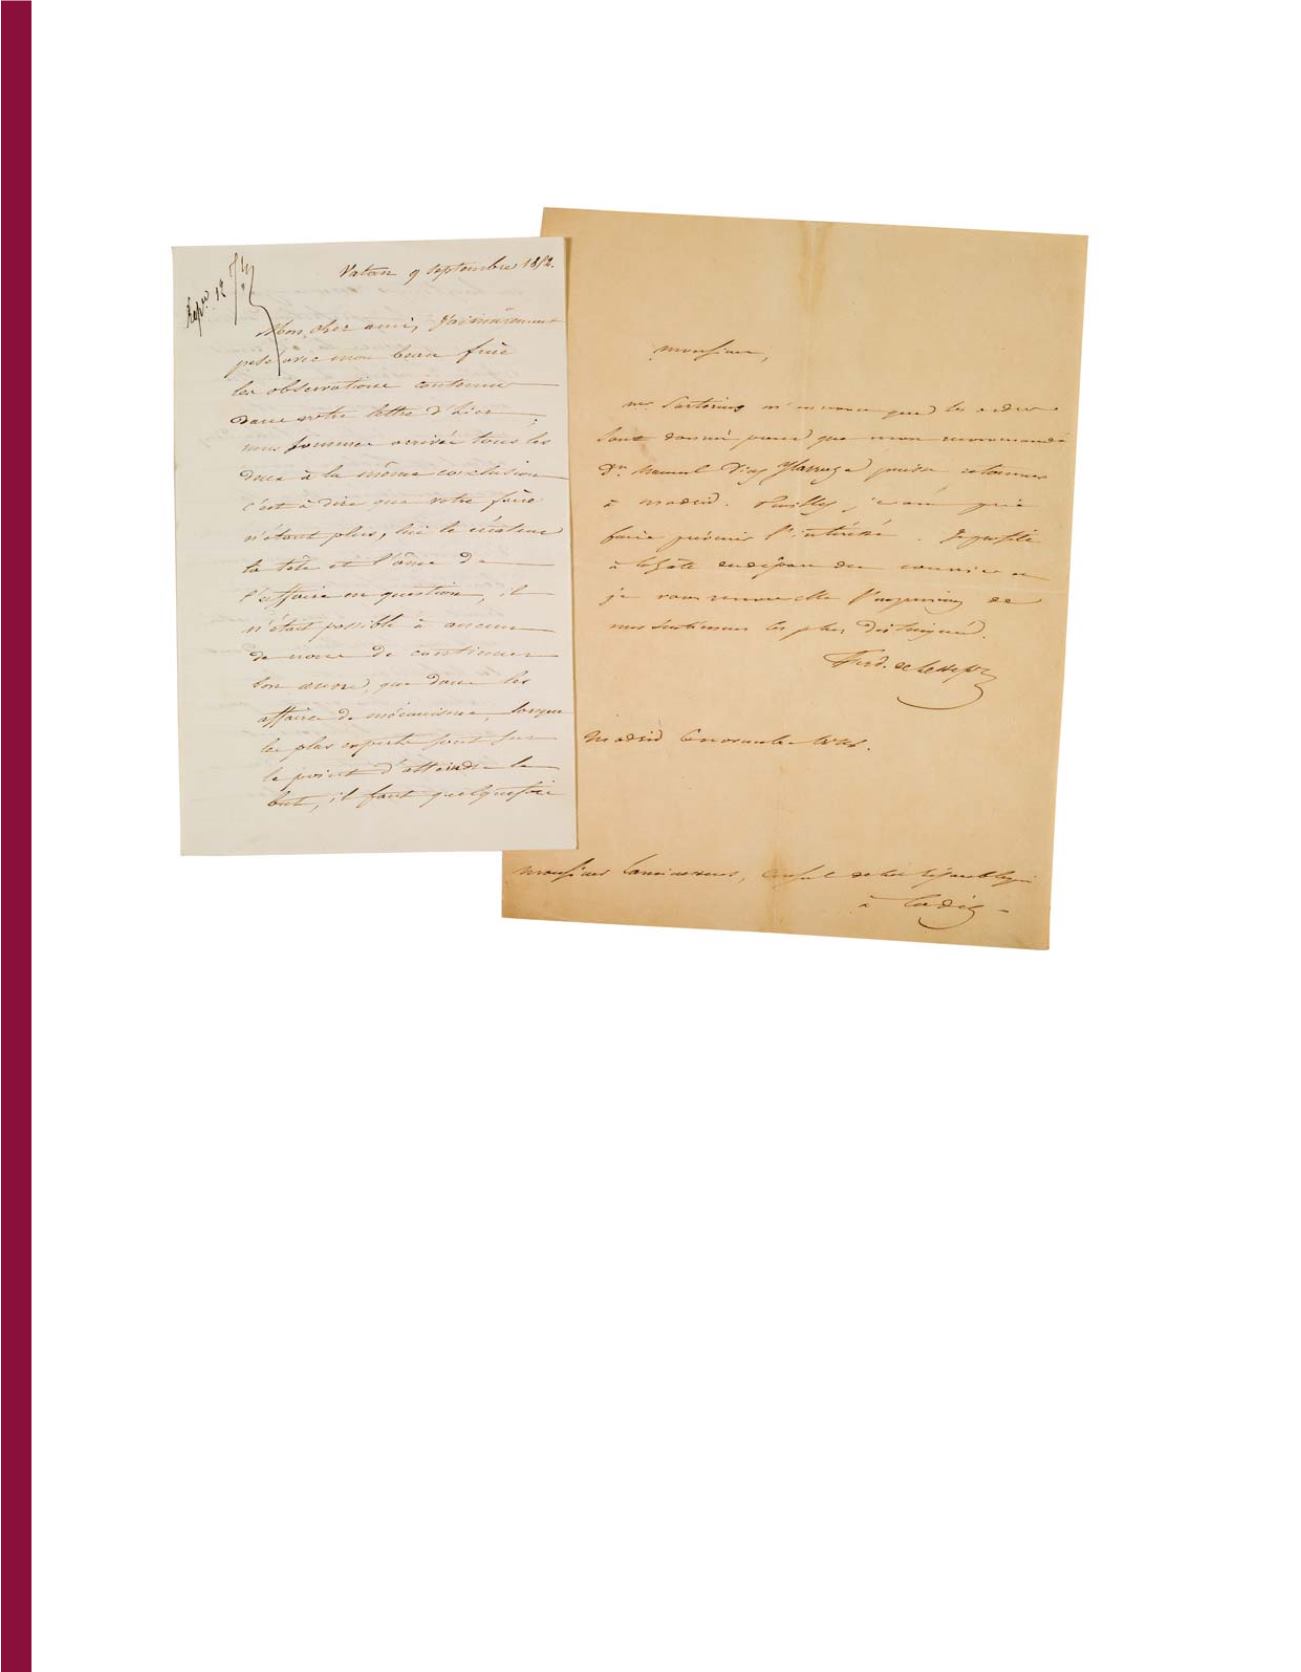 Vatan 9 septembre 1852.
Rep.
Mon cher ami, J'ai mûrement
pesé avec mon beau frère
les observations contenues
dans votre lettre d'hier,
nous sommes arrivés tous les
deux à la même conclusion
c'est à dire que votre frère
n'étant plus, lui le créateur
la tête et l'âme de
l'affaire en question, il
n'était possible à aucun
de nous de continuer
son œuvre, que dans les
affaires de mécanisme, lorsque
les plus experts sont sur
le point d'atteindre le
but, il faut quelquefois
Monsieur,
Mr. Sartorius m'annonce que les ordres
sont donnés pour que mon recommandé
Dn. Manuel Diaz puisse retourner
à Madrid. Veuillez, je vous prie
faire prévenir l'intéressé. Je profite
à la hâte du départ du courrier et
je vous renouvelle l'expression de
mes sentiments les plus distingués.
Ferd. de Lesseps
Madrid novembre
Monsieur, Consul de la République
à Cadiz